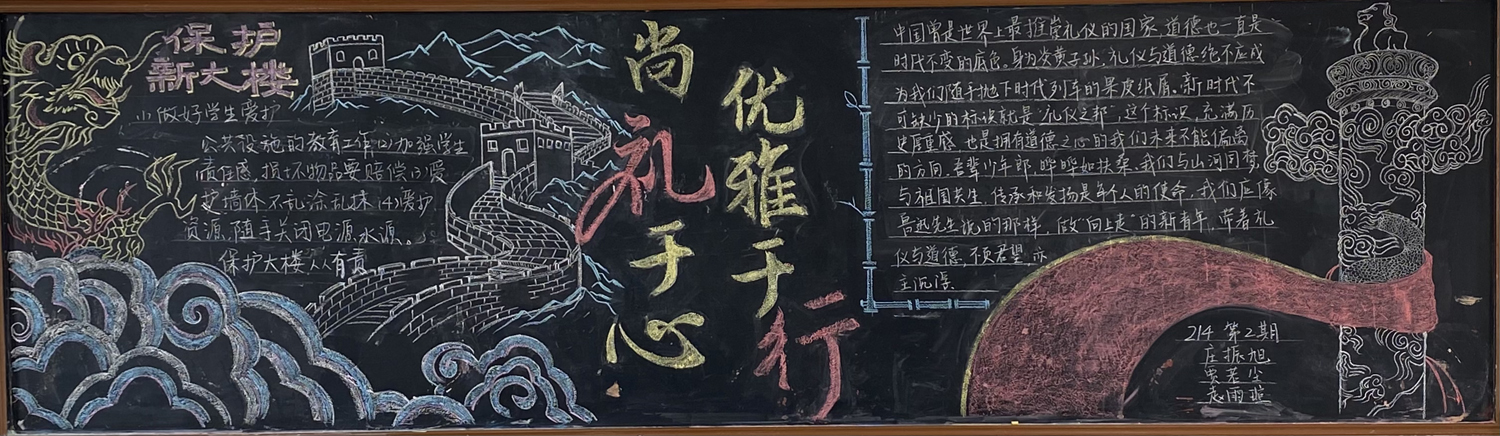 保护
新大楼
(1)做好学生爱护
公共设施的教育工作(2)加强学生
责任感,损坏物品要赔偿(3)爱
护墙体不乱涂乱抹(4)爱护
资源,随手关闭电源、水源。
保护大楼人人有责
尚礼于心
优雅于行
中国曾是世界上最推崇礼仪的国家,道德也一直是
时代不变的底色。身为炎黄子孙,礼仪与道德绝不应成
为我们随手抛下时代列车的果皮纸屑。新时代不
可缺少的标识就是“礼仪之邦”,这个标识,充满历
史厚重感,也是拥有道德之心的我们未来不能偏离
的方向。吾辈少年郎,晔晔如扶桑,我们与山河同梦,
与祖国共生,传承和发扬是每个人的使命,我们应像
鲁迅先生说的那样,做“向上走”的新青年,带着礼
仪与道德,不负君望,亦
主沉浮
214 第2期
庄振旭
贾若尘